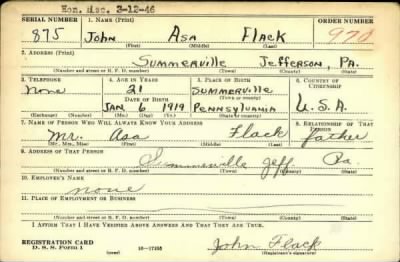 Hon. Disc. 3-12-46
SERIAL NUMBER 1. NAME (Print) ORDER NUMBER
875 John Asa Flack 970
(First) (Middle) (Last)
2. ADDRESS (Print)
Summerville Jefferson, PA.
(Number and street or R. F. D. number) (Town) (County) (State)
3. TELEPHONE 4. AGE IN YEARS 5. PLACE OF BIRTH 6. COUNTRY OF CITIZENSHIP
None 21 Summerville
DATE OF BIRTH (Town or county)
Jan 6 1919 Pennsylvania U.S.A.
(Exchange) (Number) (Mo.) (Day) (Yr.) (State or country)
7. NAME OF PERSON WHO WILL ALWAYS KNOW YOUR ADDRESS 8. RELATIONSHIP OF THAT PERSON
Mr. Asa Flack father
(Mr., Mrs., Miss) (First) (Middle) (Last)
9. ADDRESS OF THAT PERSON
Summerville Jeff. Pa.
(Number and street or R. F. D. number) (Town) (County) (State)
10. EMPLOYER'S NAME
none
11. PLACE OF EMPLOYMENT OR BUSINESS
(Number and street or R. F. D. number) (Town) (County) (State)
I AFFIRM THAT I HAVE VERIFIED ABOVE ANSWERS AND THAT THEY ARE TRUE.
REGISTRATION CARD
D. S. S. Form 1 (over) 16-17105 John Flack
(Registrant's signature)